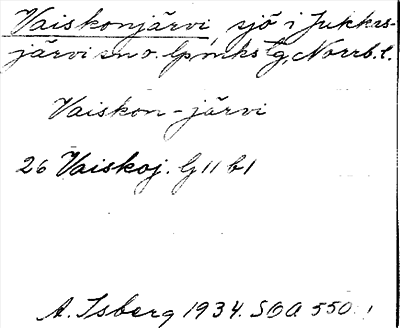 Vaiskonjärvi, sjö i Jukkas-
järvi sn o. lpmkstg, Norrb. l.
Vaiskon-järvi
26 Vaiskoj. G 11 b 1
A. Isberg 1934. SOA 550.